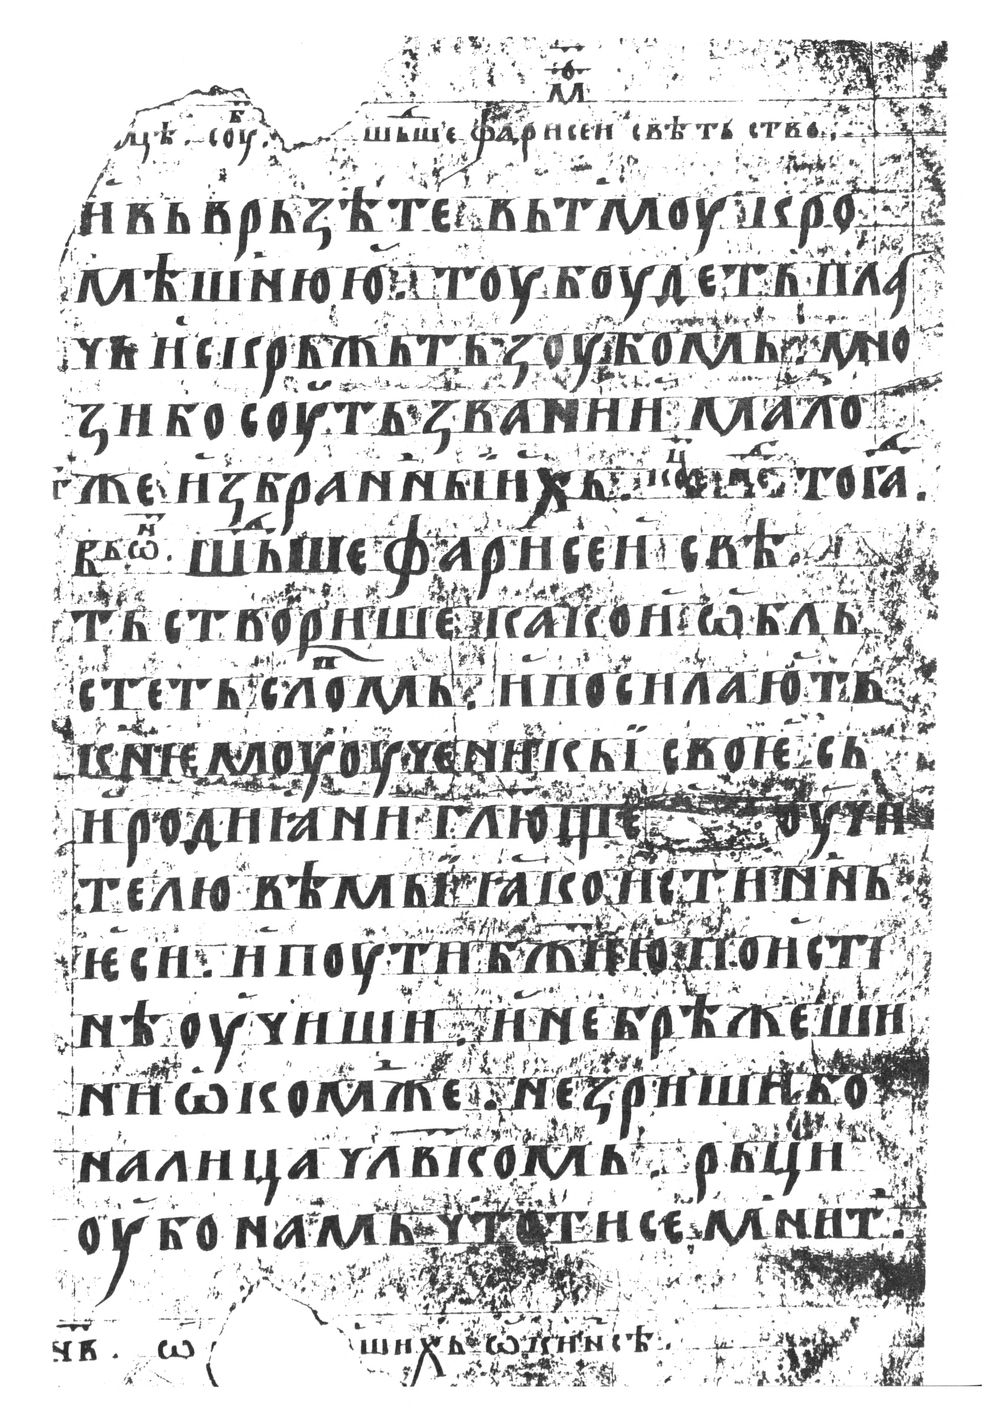 шьше фарисеи свѣть ство.
и вьврьзѣте вьтмоу кро
мѣшнюю. тоу боудеть пла
чь и скрьжьть зоубомь. мно
зи бо соуть звании мало
же избранныихь. тога.
шьше фарисеи свѣ
ть створише како и ѡбль
стеть словомь. и посилають
к нѥмоу оученикы своѥ сь
иродиꙗни глюще оучи
телю вѣмы ꙗко истиннь
ѥси. и поути бжию по исти
нѣ оучиши. и не брѣжеши
ни ѡ комже. не зриши бо
на лица члвкомь. рьци
оубо намь что ти се мнит.
шихь ѡ кинсѣ.